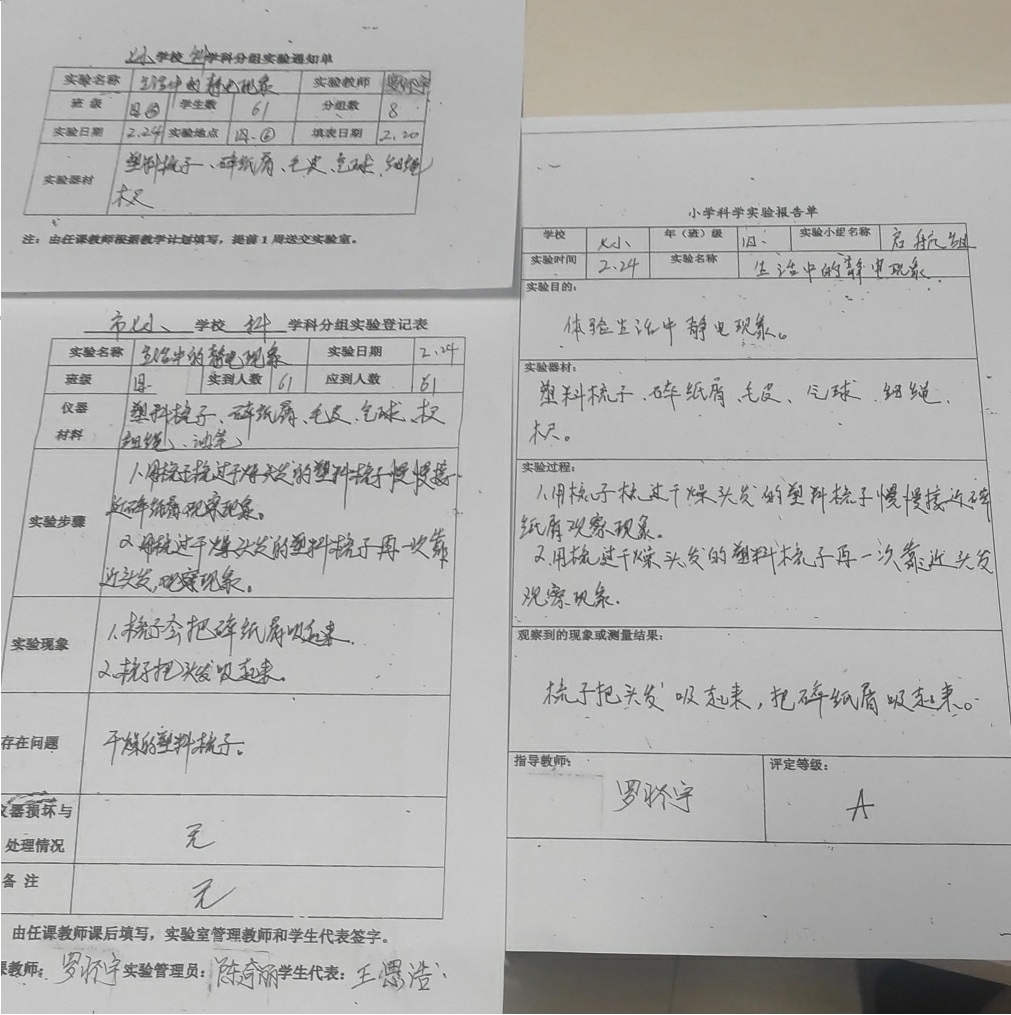 学校 科学科分组实验通知单
实验名称 生活中的静电现象 实验教师
班级 四 学生数 61 分组数 8
实验日期 2.24 实验地点 四. 填表日期 2.20
实验器材 塑料梳子、碎纸屑、毛皮、气球、细绳
木尺
注：由任课教师根据教学计划填写，提前1周送交实验室。
学校 科 学科分组实验登记表
实验名称 生活中的静电现象 实验日期 2.24
班级 四. 实到人数 61 应到人数 61
仪器材料 塑料梳子、碎纸屑、毛皮、气球、木尺
细绳、油笔
实验步骤 1.用梳子梳过干燥头发的塑料梳子慢慢接
近碎纸屑观察现象。
2.用梳过干燥头发的塑料梳子再一次靠
近头发,观察现象。
实验现象 1.梳子会把碎纸屑吸起来.
2.梳子把头发吸起来.
存在问题 干燥的塑料梳子。
仪器损坏与
处理情况 无
备注 无
由任课教师课后填写，实验室管理教师和学生代表签字。
课教师： 实验管理员： 学生代表：
小学科学实验报告单
学校 年（班）级 四. 实验小组名称 启航组
实验时间 2.24 实验名称 生活中的静电现象
实验目的：
体验生活中静电现象。
实验器材：
塑料梳子、碎纸屑、毛皮、气球、细绳、
木尺。
实验过程：
1.用梳子梳过干燥头发的塑料梳子慢慢接近碎
纸屑观察现象。
2.用梳过干燥头发的塑料梳子再一次靠近头发
观察现象.
观察到的现象或测量结果：
梳子把头发吸起来，把碎纸屑吸起来。
指导教师： 评定等级：
A